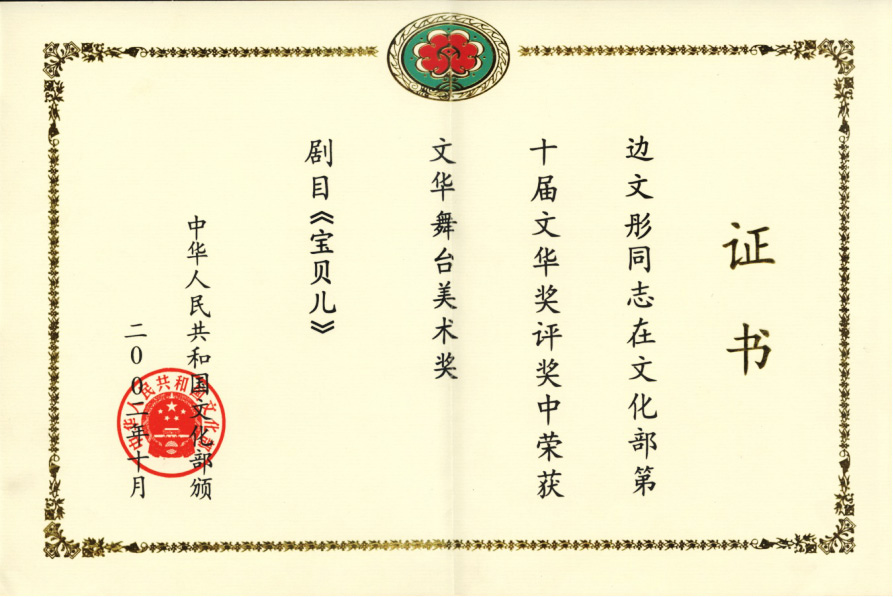 证书
边文彤同志在文化部第
十届文华奖评奖中荣获
文华舞台美术奖
剧目《宝贝儿》
中华人民共和国文化部颁
二00二年十月
中华人民共和国文化部